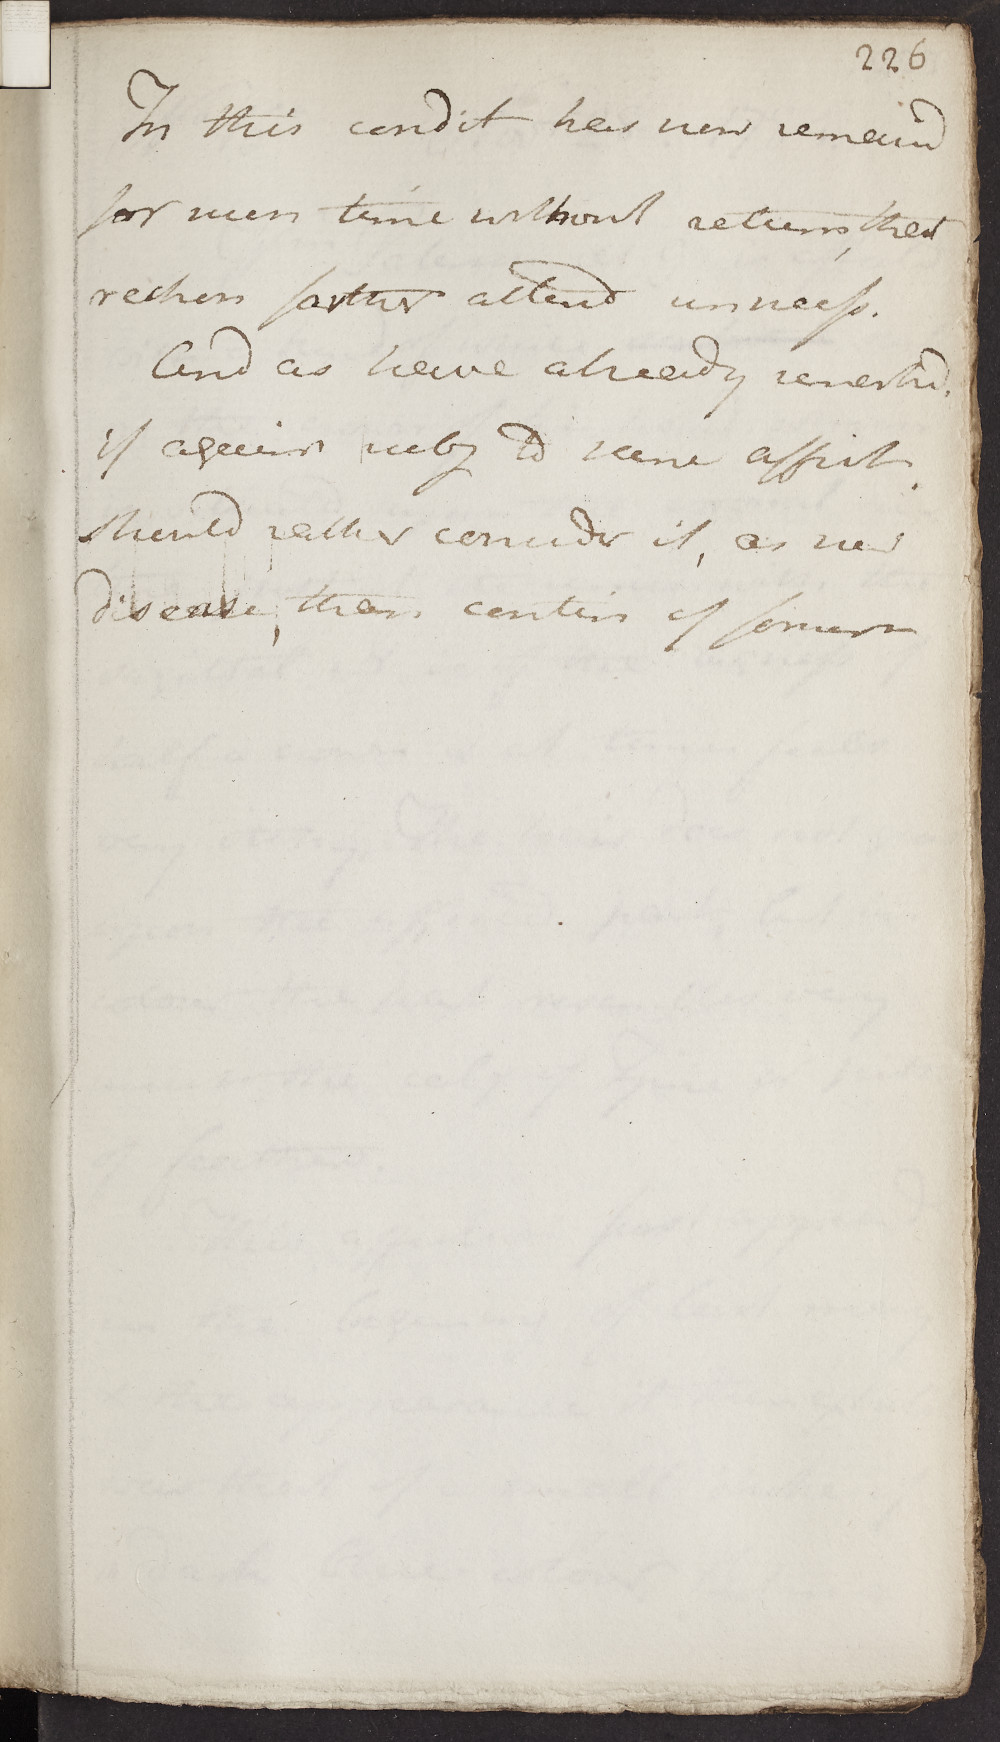 226
In this condit has now remaind
for many time without return, that
reckon farther attend unnecess.
And as have already remarkd,
if again subj to same affect,
should rather consider it, as new
disease, than contin of former